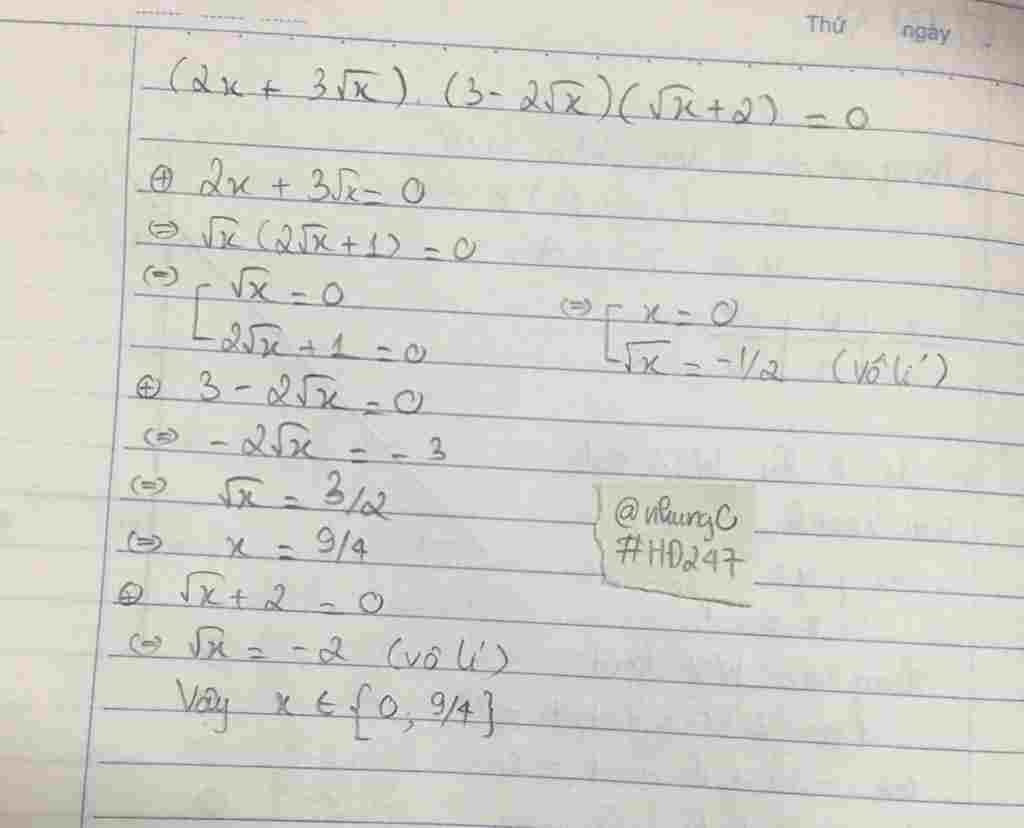 Thứ ngày
(2x + 3√x).(3 - 2√x)(√x + 2) = 0
⊕ 2x + 3√x = 0
⇔ √x (2√x + 1) = 0
⇔ [ √x = 0 ⇔ [ x = 0
2√x + 1 = 0 √x = -1/2 (vô lí)
⊕ 3 - 2√x = 0
⇔ -2√x = -3
⇔ √x = 3/2
@nhungC
⇔ x = 9/4
#HĐ247
⊕ √x + 2 = 0
⇔ √x = -2 (vô lí)
Vậy x ∈ {0; 9/4}